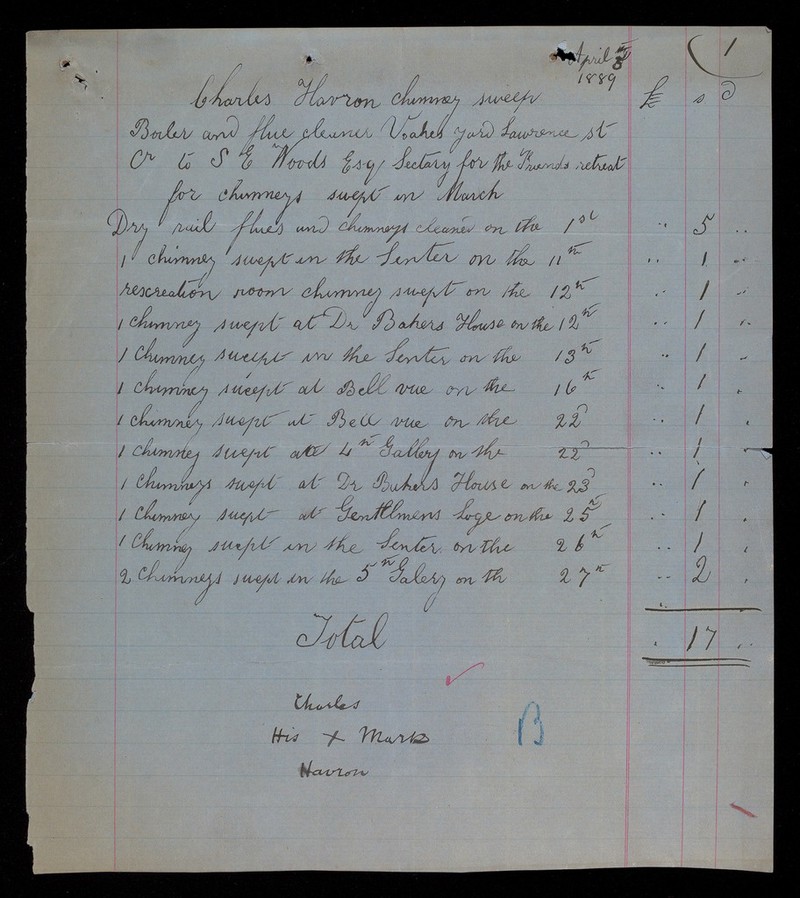 April 8th 1
1889
Charles Havron chimney sweep £ s d
Boiler and flue cleaner Voakes yard Lawrence st
Cr to S E Woods Esq Sectary for the Friends retreat
for chimneys swept in March
Dry rail flues and chimneys cleaned on the 1st .. 5 ..
1 chimney swept in the Senter on the 11th .. 1 ..
rescreation room chimney swept on the 12th .. 1 ..
1 chimney swept at Dr Bakers House on the 12th .. 1 ..
1 Chimney swept in the Senter on the 13th .. 1 ..
1 chimney swept at Bell vue on the 16th .. 1 .
1 chimney swept at Bell vue on the 22d .. 1 .
1 chimney swept att 4th Gallery on the 22d .. 1 .
1 Chimneys swept at Dr Bakers House on the 23d .. 1 .
1 Chimney swept at Gentllmens Loge on the 25th .. 1 .
1 Chimney swept in the Senter on the 26th .. 1 .
2 Chimneys swept in the 5th Galery on th 27th .. 2 .
Total . 17 ..
Charles
His X Mark
Havron
B